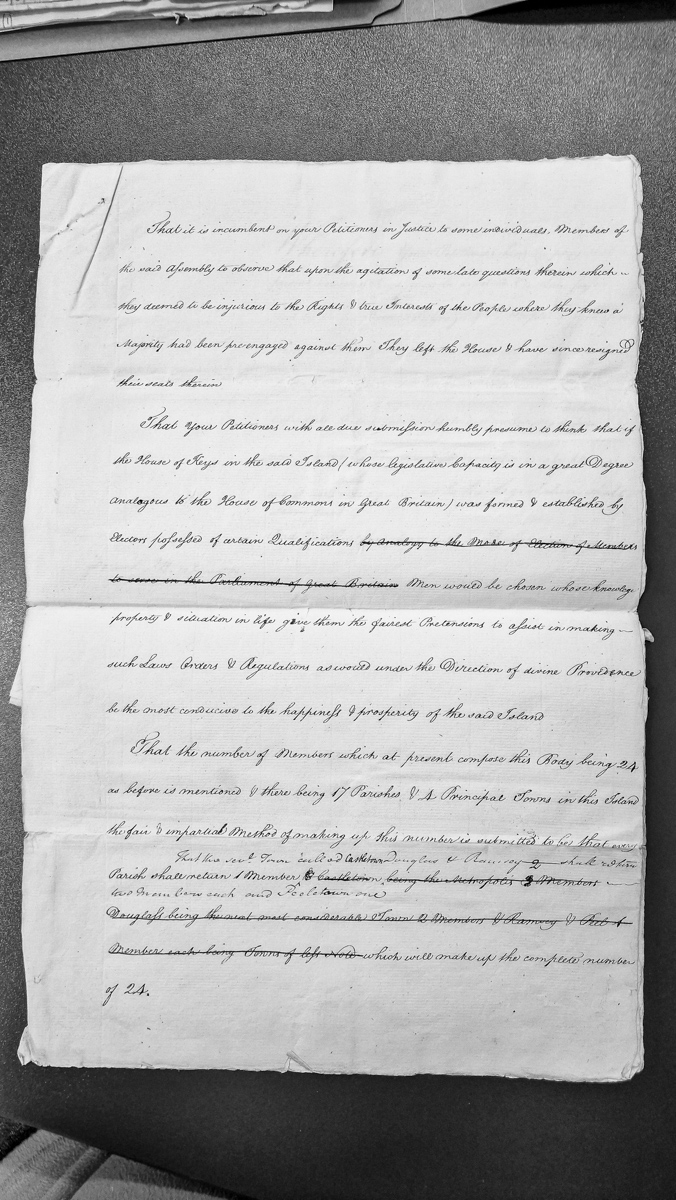 That it is incumbent on your Petitioners in Justice to some individuals, Members of
the said Assembly to observe that upon the agitation of some late questions therein which
they deemed to be injurious to the Rights & true Interests of the People where they knew a
Majority had been pre engaged against them They left the House & have since resigned
their seats therein
That Your Petitioners with all due submission humbly presume to think that if
the House of Keys in the said Island (whose legislative Capacity is in a great Degree
analogous to the House of Commons in Great Britain) was formed & established by
Electors possessed of certain Qualifications by analogy to the Mode of Election of Members
to serve in the Parliament of Great Britain Men would be chosen whose knowlege
property & situation in life give them the fairest Pretensions to assist in making
such Laws Orders & Regulations as would under the Direction of divine Providence
be the most conducive to the happiness & prosperity of the said Island
That the number of Members which at present compose this Body being 24
as before is mentioned & there being 17 Parishes & 4 Principal Towns in this Island
the fair & impartial Method of making up this number is submitted to be that every
that the sevl. Town called Castletown Douglas & Ramsey shall return
Parish shall return 1 Member & Castletown being the Metropolis 3 Members
two members each and Peeletown one
Douglass being the next most considerable Town 2 Members & Ramsey & Peel 1
Member each being Towns of less Note which will make up the complete number
of 24.